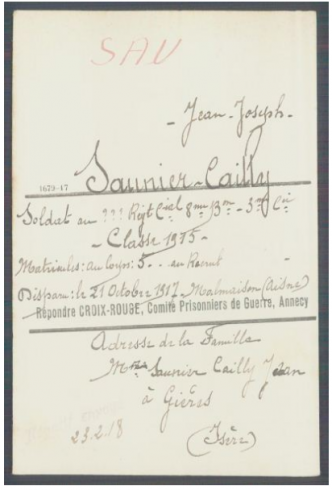 SAU
- Jean - Joseph -
Saunier-Cailly
1679-17
Soldat au ??? Régt Ciel 8me Bon - 3me Cie
- Classe 1915 -
Matricules: au Corps: 5... au Recrut -
Disparu: le 21 Octobre 1917 - Malmaison (Aisne)
Répondre CROIX-ROUGE, Comité Prisonniers de Guerre, Annecy
Adresse de la Famille
Saunier Cailly Jean
à Gières
23.2.18
(Isère)